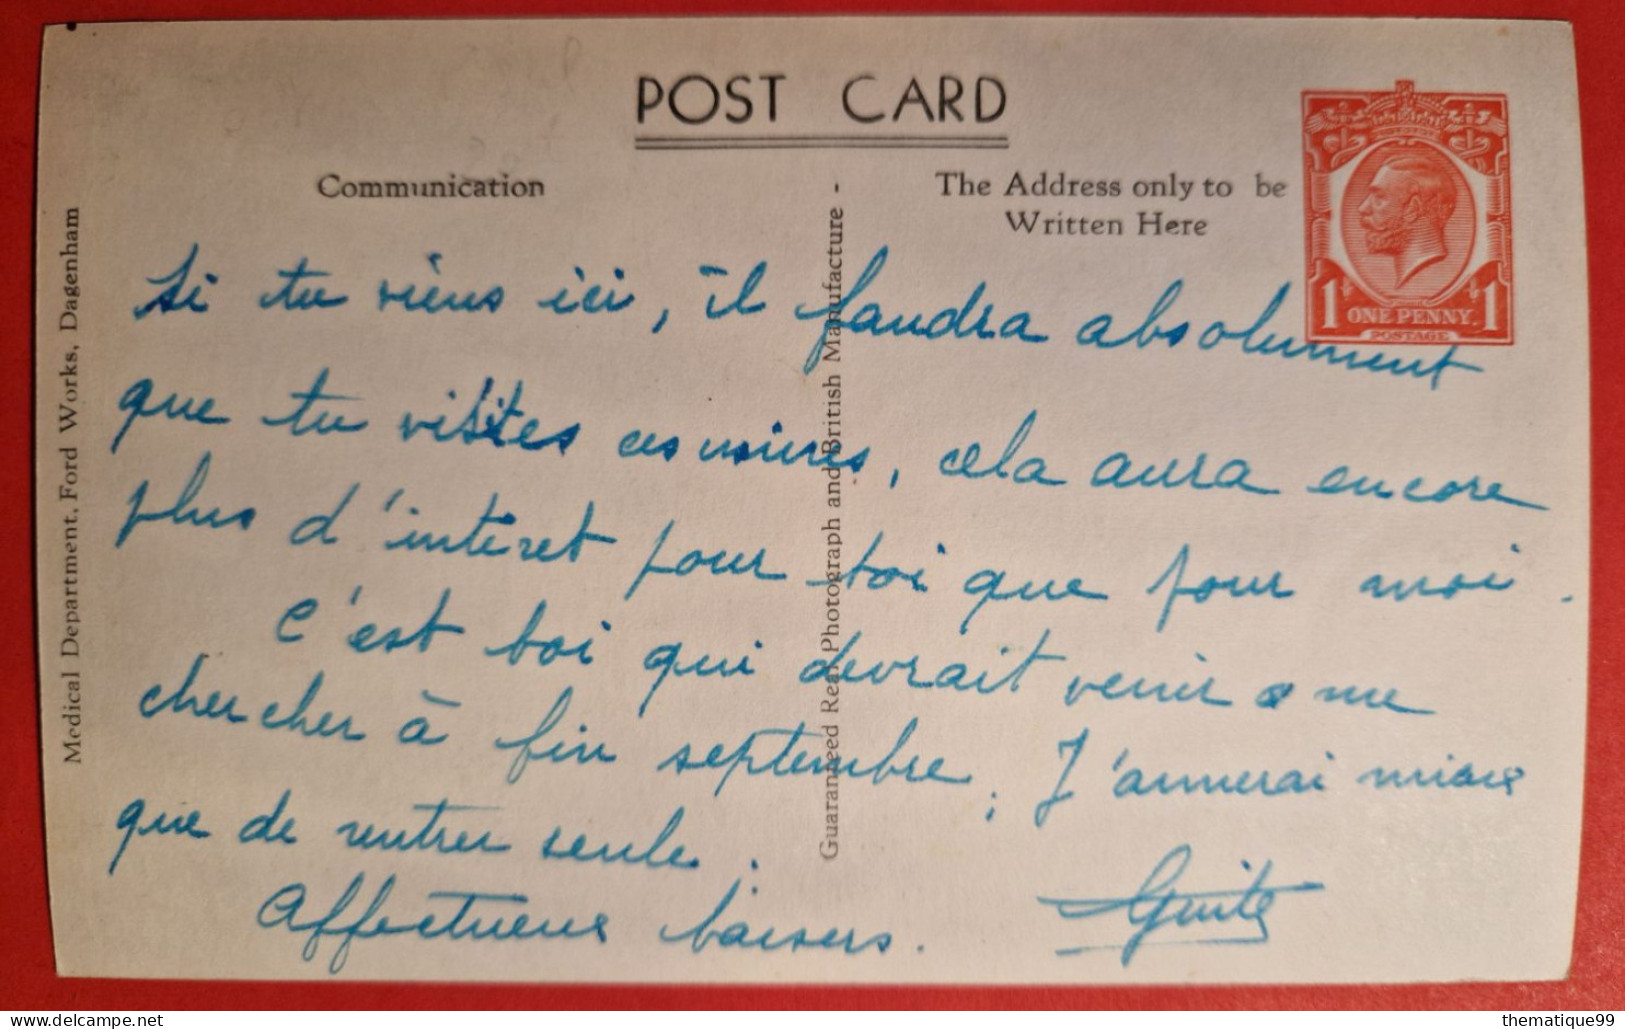 POST CARD
Communication
The Address only to be
Written Here
1 ONE PENNY. 1
POSTAGE
Medical Department, Ford Works, Dagenham
Guaranteed Real Photograph and British Manufacture -
Si tu viens ici, il faudra absolument
que tu visites ces usines, cela aura encore
plus d'intéret pour toi que pour moi.
C'est toi qui devrait venir me
chercher à fin septembre, J'aimerai mieux
que de rentrer seule.
Affectueux baisers. Guite
thematique99